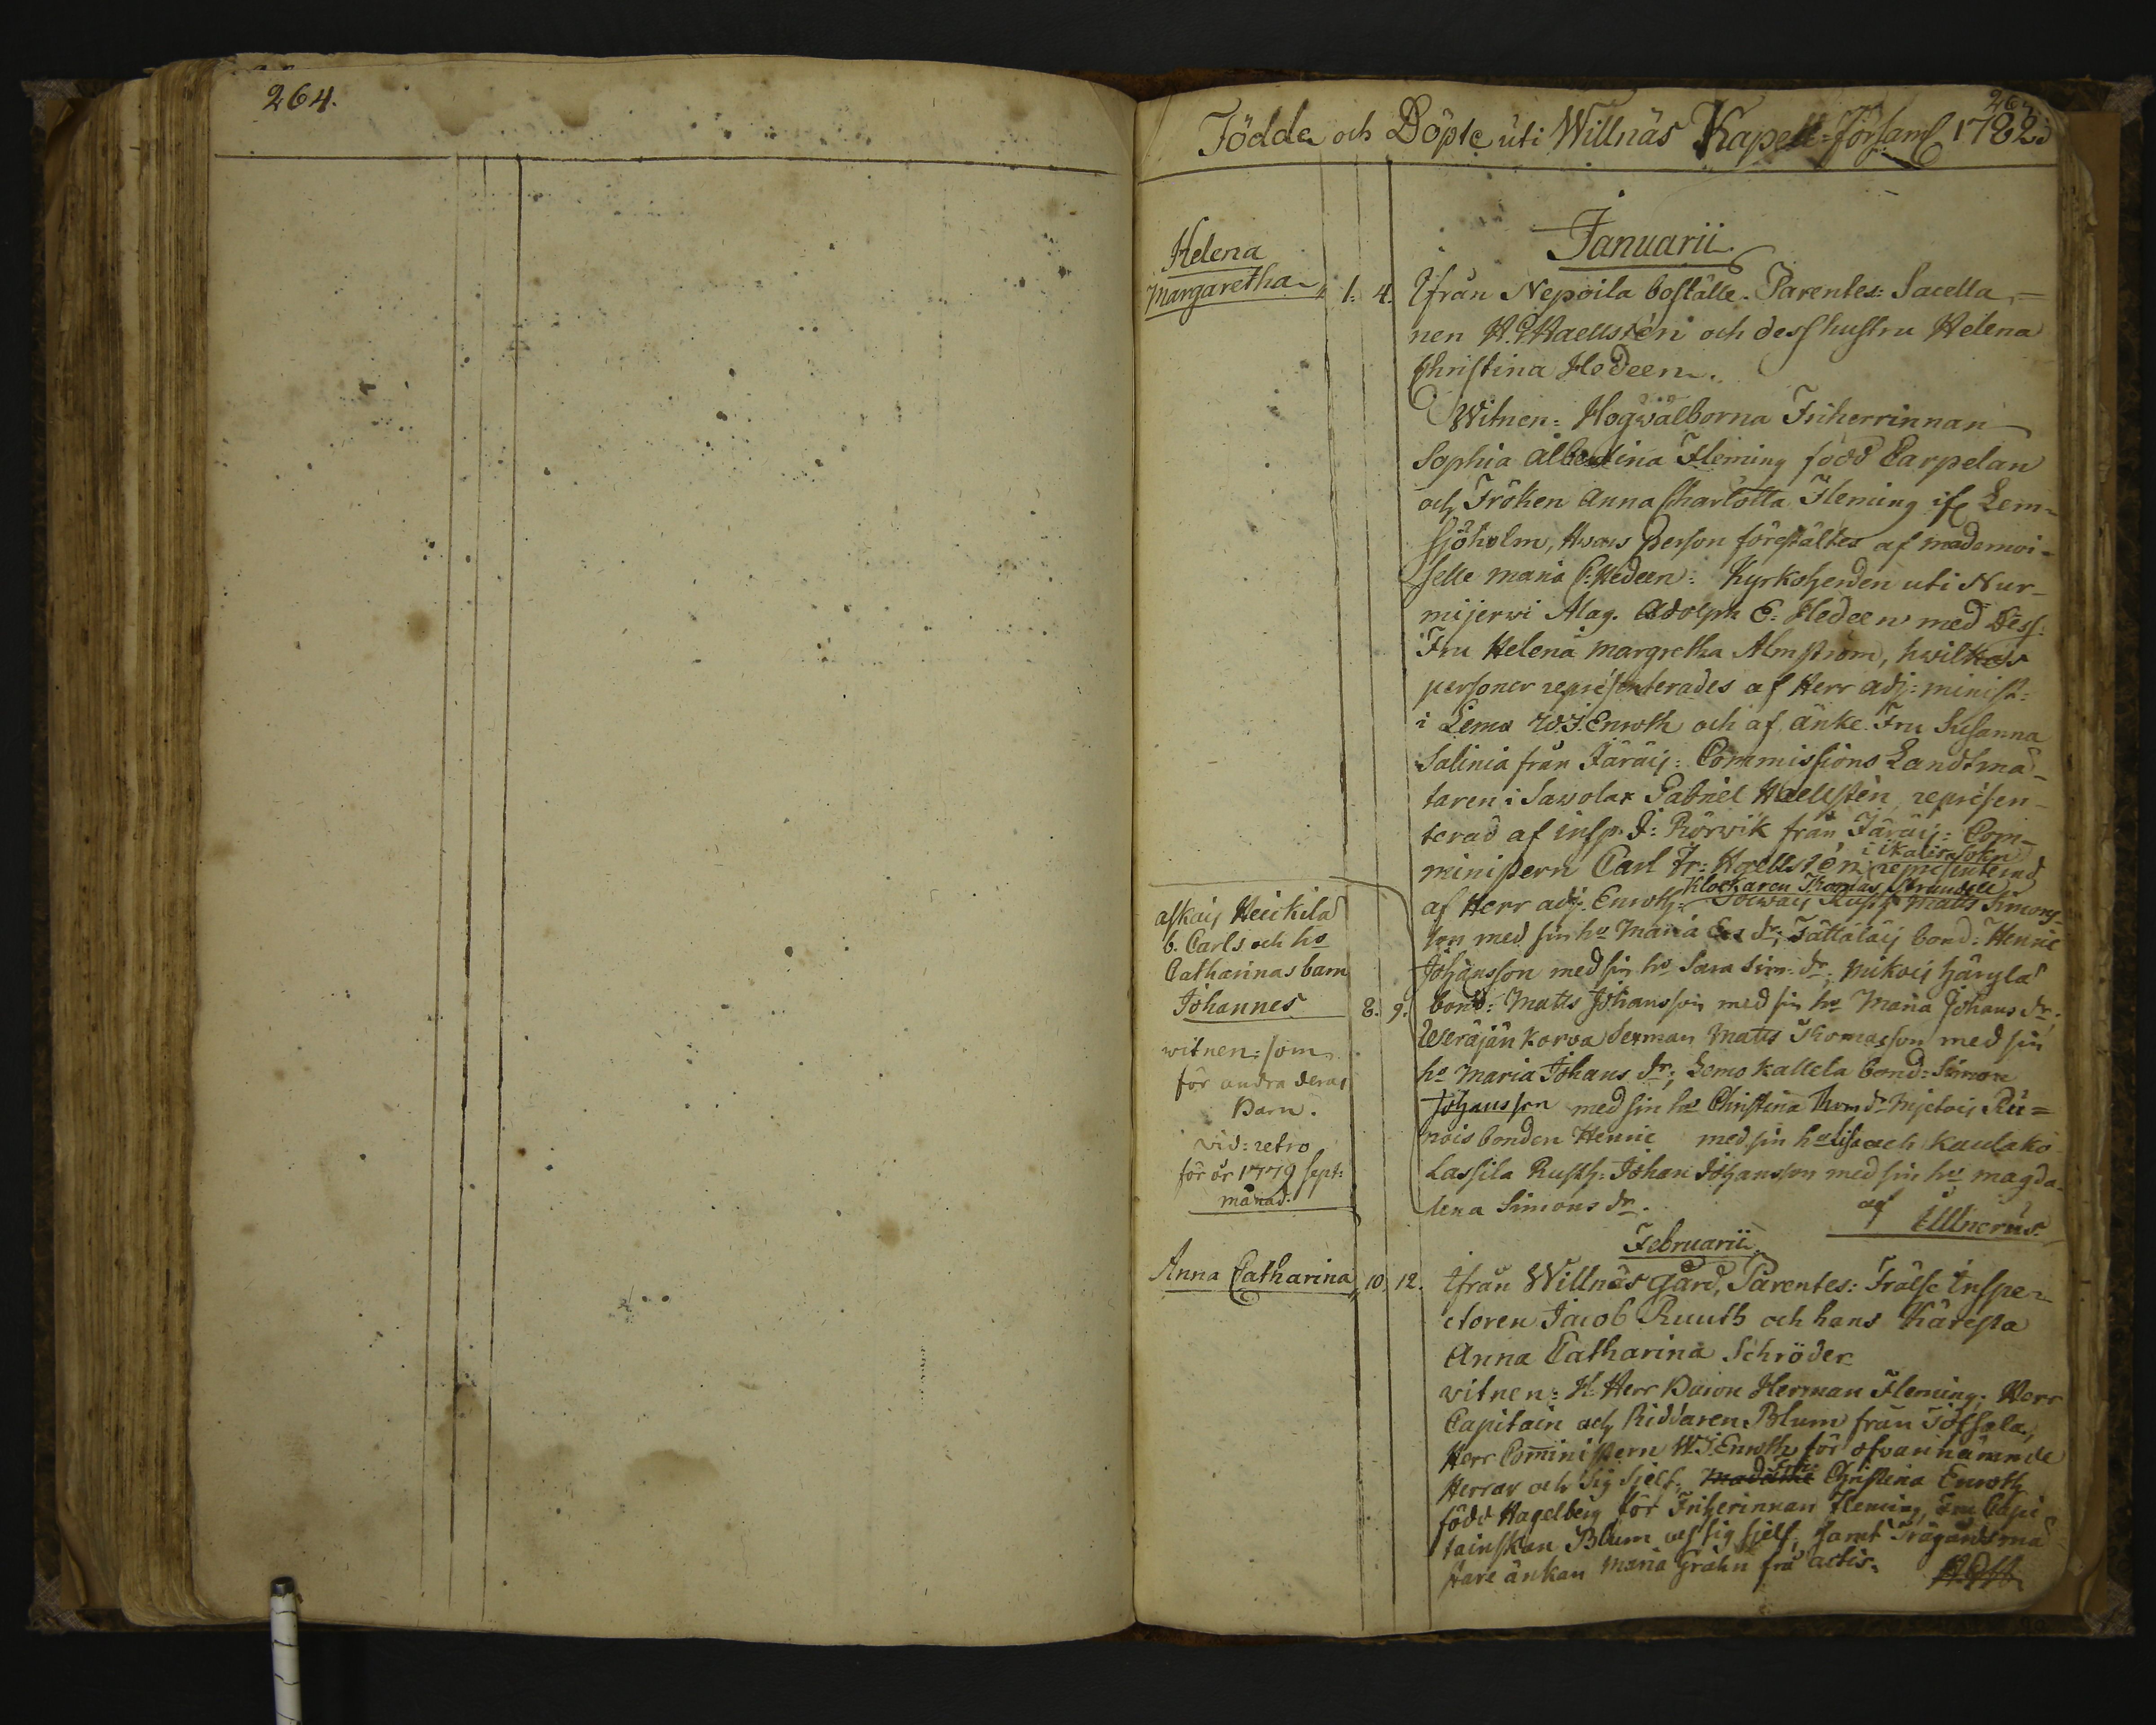 264.
Födde och Döpte uti Willnäs Kapell-församl 1782
Januarii
Helena
Margaretha
1. 4. Ifrån Nepoila boställe. Parentes: Sacella-
nen H. Haellstén och dess hustru Helena
Christina Hedeen.
Witnen: Högwälborna Friherrinnan
Sophia Albertina Fleming född Carpelan
och Fröken Anna Charlotta Fleming ifr Lem-
sjöholm, Hwars person förestältes af mademoi-
selle Maria C. Hedeen: Kyrkoherden uti Nur-
mijerwi Mag. Adolph E. Hedeen med Dess
Fru Helena Margretha Almström, hwilkas
personer representerades af Herr adj: minist:
i Lemo W. J. Enroth och af änke Fru Susanna
Salinia från Järäis: Commissions Landtmä-
taren i Sawolax Gabriel Haellstén, represen-
terad af insp. J: Rörwik från Järäis: Com-
ministern Carl Fr: Haellstén i Ikalis sokn representerad
af Herr adj. Enroth: Klockaren Thomas Strandell
Rusth Matts Simons-
son med sin ho Maria dr; Tättäläis bond: Henric
Johansson med sin ho Sara Sim: dr; Mikois Häryla
askais Heickilä
b. Carls och ho
Catharinas barn
Johannes
8. 9. bond: Matts Johansson med sin ho Maria Johans dr.
witnen: som
för andra deras
Barn.
vid: retro
för år 1779 sept:
månad.
Weräjänkorva Sexman Matts Thomasson med sin
ho Maria Johans dr; Lemo Kallela bond: Simon
Johansson med sin ho Christina Thom dr Mjetois Ru-
nois bonden Henric med sin ho Lisa och Kaulako
Lassila Rusth: Johan Johansson med sin ho Magda-
lena Simons dr.
af Ullnerus.
Februarii
Anna Catharina 10. 12. Ifrån Willnäs Gård, Parentes: Frälse Inspe-
ctoren Jacob Ruuth och hans Käresta
Anna Catharina Schröder
witnen: H. Herr Baron Herman Fleming, Herr
Capitain och Riddaren Blum från Töfsala,
Herr Comministern W. J. Enroth för ofvannämnde
Herrar och sig sjelf, Madame Fru Christina Enroth
född Hagelberg för Friherinnan Fleming, Fru Capi-
tainskan Blum och sig sjelf, samt Trägårdsmä-
stare änkan Maria Grahn frå actis.